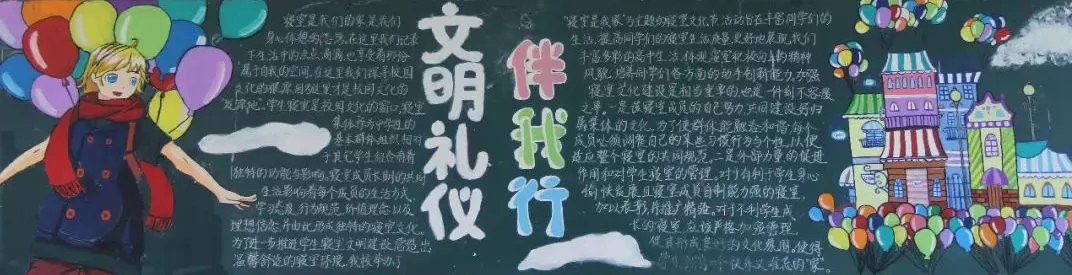 文明礼仪
伴我行
寝室是我们的家是我们
身心休憩的港湾。在这里我们记录
下生活中的点点滴滴,也享受着那份
属于自我的空间。在这里我们探寻校园
文化的根源因为这里才是校园文化的
发源地。学生寝室是校园文化的窗口,寝室
集体作为中学生的
基本群体组织,相对
于其它学生组合有着
独特的功能与影响。寝室成员长期的共同
生活影响着每个成员的生活方式、
学习态度、行为规范、价值理念以及
理想信念,并由此形成独特的寝室文化。
为了进一步推进学生寝室文明建设,营造出
温馨舒适的寝室环境,我校举办了
“寝室是我家”为主题的寝室文化节活动旨在丰富同学们的
生活,提高同学们的寝室生活质量,更好地展现我们
丰富多彩的高中生活,体现寝室积极向上的精神
风貌,培养同学们各方面的动手创新能力,加强
寝室文化建设是相当重要的,也是一件刻不容缓
之事。一是在寝室成员的自己努力,共同建设好归
属集体的文化。为了使群体能融洽和谐,每个
成员必须调整自己的某些习惯行为与个性,以便
适应整个寝室的共同规范。二是外部力量的促进
作用和对学生寝室的管理。对于有利于学生身心
愉快发展,且寝室成员自制能力强的寝室
加以表彰并推广精验。对于不利学生成
长的寝室,应该严格加强管理,
使其形成良好的文化氛围。使得
一个快乐又难忘的“家”。